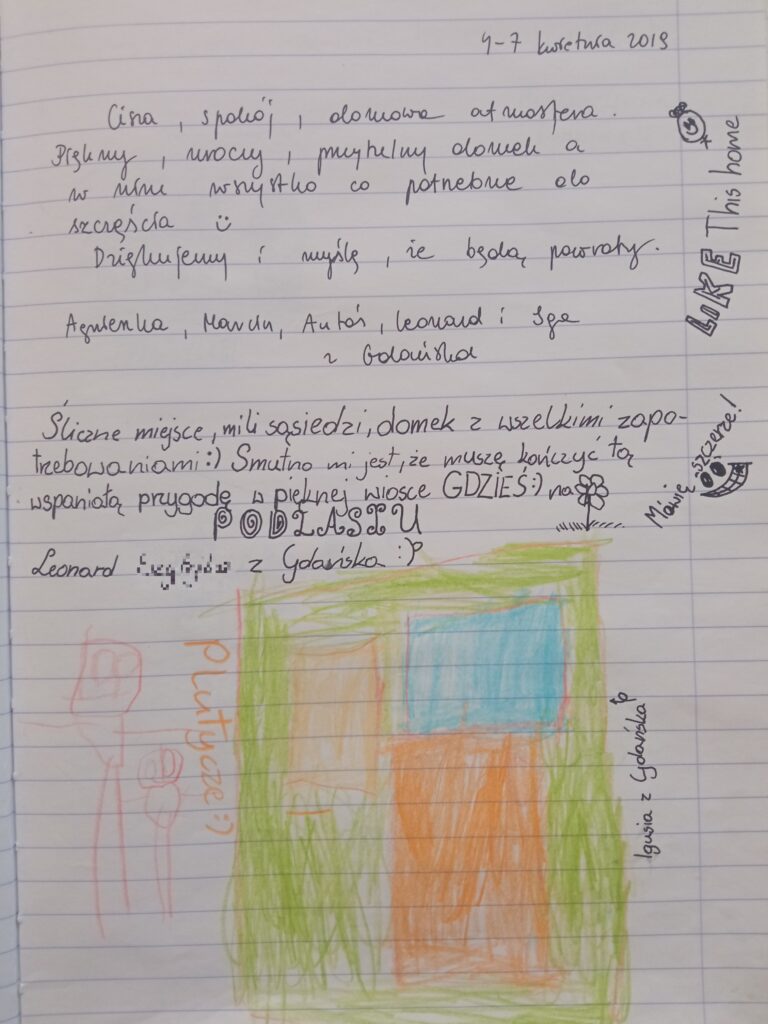 4-7 kwietnia 2019
Cisza, spokój, domowa atmosfera.
Piękny, uroczy, przytulny domek a
w nim wszystko co potrzebne do
szczęścia ☺
Dziękujemy i myślę, że będą powroty.
Agnieszka, Marcin, Antoś, Leonard i Iga
z Gdańska
LIKE This home
Śliczne miejsce, mili sąsiedzi, domek z wszelkimi zapo-
trzebowaniami:) Smutno mi jest, że muszę kończyć tą
wspaniałą przygodę w pięknej wiosce GDZIEŚ:) na
PODLASIU
Mówię szczerze!
Leonard z Gdańska :P
Plutycze:)
Igusia z Gdańska